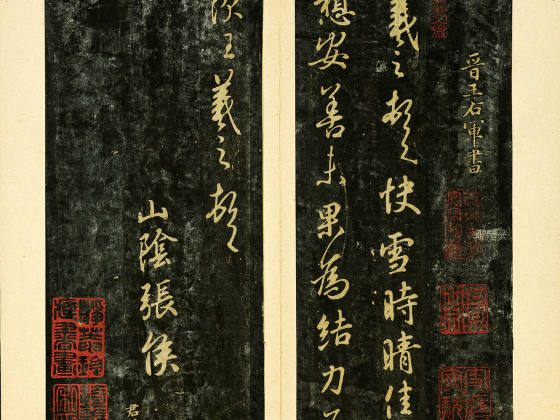 晉王右軍書
羲之頓首快雪時晴佳
想安善未果為結力不
次王羲之頓首
山陰張侯
君